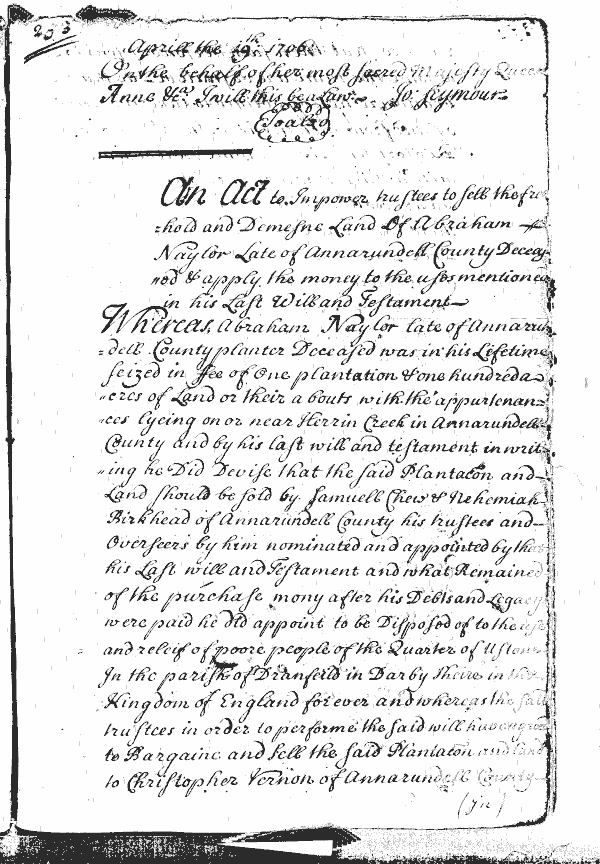 203
Aprill the 19th 1706
On the behalf of her most Sacred Majesty Queen
Anne &ca I will this be a Law. Jo: Seymour
An Act to Impower trustees to sell the fre
=hold and Demesne Land Of Abraham
Naylor Late of Annarundell County Deceas
=ed & apply the money to the uses mentioned
in his Last Will and Testament
Whereas Abraham Naylor late of Annarun
=dell County planter Deceased was in his Lifetime
seized in fee of One plantation & one hundred a
=cres of Land or their abouts with the appurtenan=
=ces lyeing on or near Herrin Creek in Annarundell
County and by his last will and testament in writ
=ing he Did Devise that the said Plantacon and
Land should be sold by Samuell Chew & Nehemiah
Birkhead of Annarundell County his trustees and
Overseers by him nominated and appointed by that
his Last will and Testament and what Remained
of the purchase mony after his Debts and Legacys
were paid he did appoint to be Disposed of to the use
and releif of poore people of the Quarter of
In the parish of Dranfeild in Darby Sheire in the
Kingdom of England for ever and whereas the said
trustees in order to performe the said will have
to Bargaine and sell the said Plantacon and land
to Christopher Vernon of Annarundell County